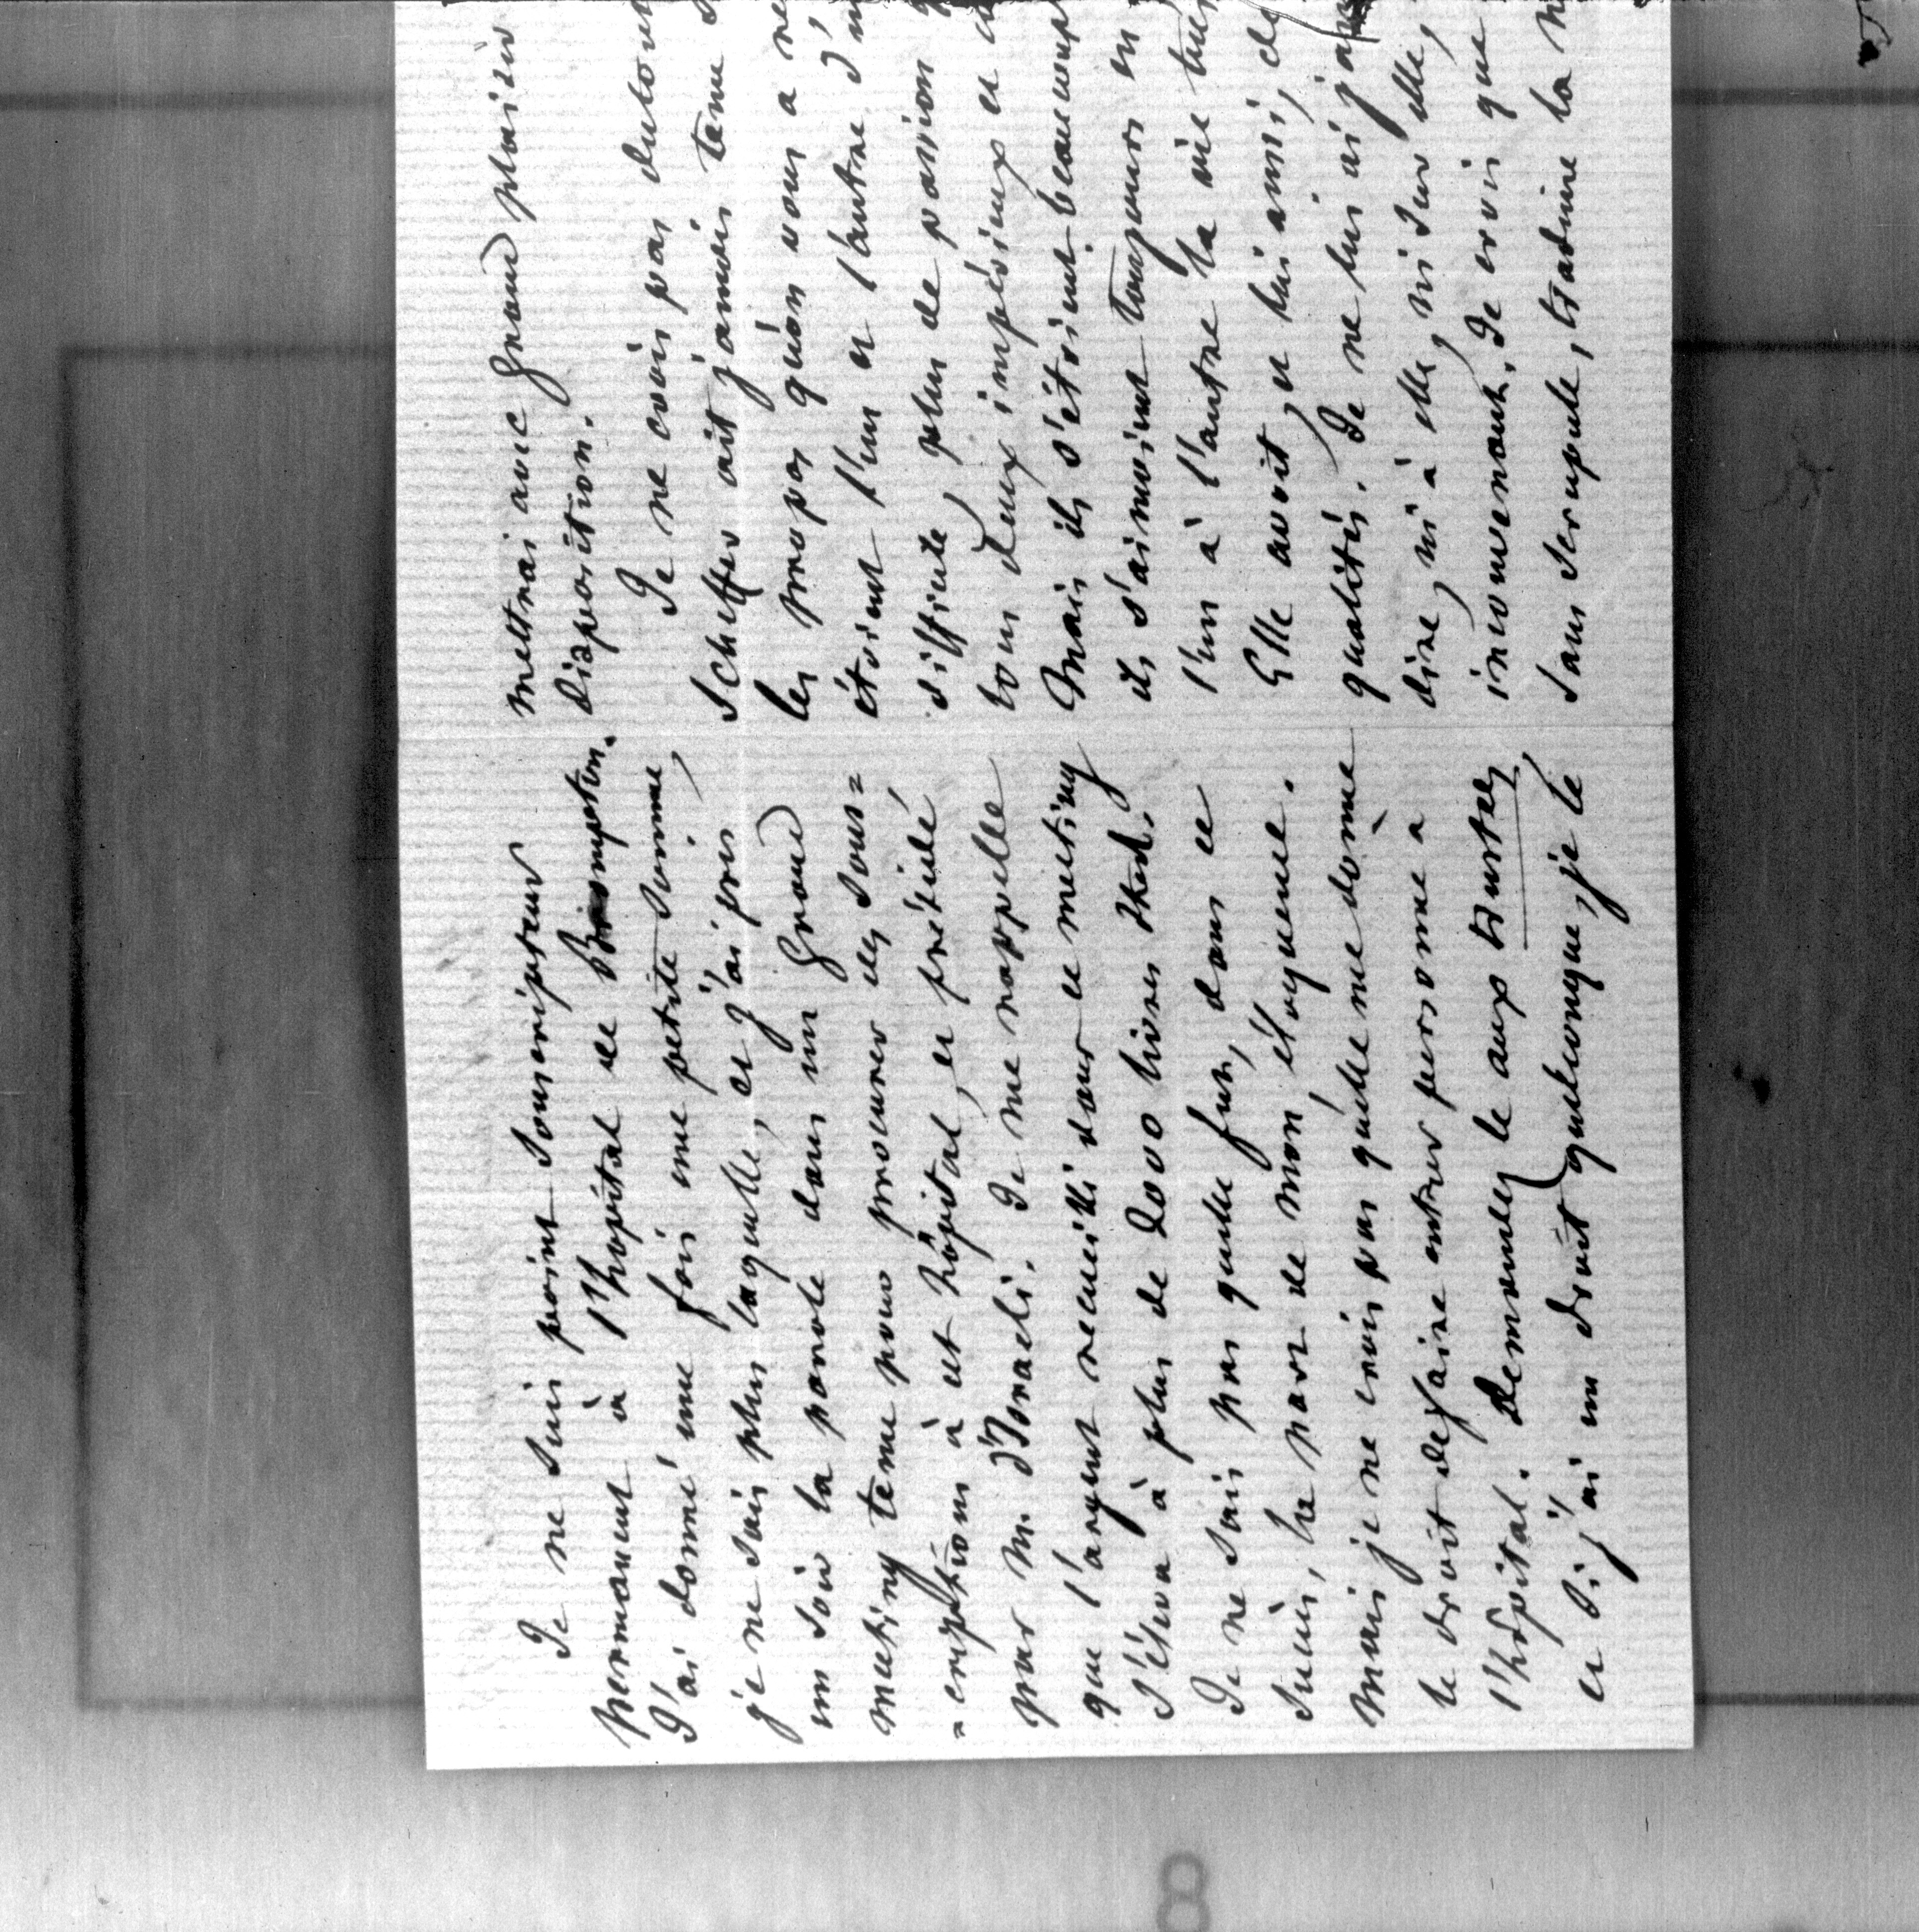 Je ne suis point souscripteur
permanent à l'hôpital de Brompton.
J'ai donné une fois une petite somme,
je ne sais plus laquelle, et j'ai pris
un soir la parole dans un grand
meeting tenu pour procurer des sous=
=criptions à cet hôpital, et présidé
par M. d'Israeli. Je me rappelle
que l'argent recueilli dans ce meeting
s'éleva à plus de 2000 livres sterl.
Je ne sais pas quelle fut, dans ce
succès, la part de mon éloquence.
Mais je ne crois pas qu'elle me donne
le droit de faire entrer personne à
l'hôpital. Demandez le aux
et si j'ai un droit quelconque, je le
mettrai avec grand plaisir
disposition.
Je ne crois pas du tout
Scheffer ait jamais tenu
les propos qu'on vous a
étoient l'un et l'autre d'
difficile, plein de passion
tous deux impérieux et
Mais ils s'étoient beaucoup
ils s'aimoient toujours en
l'un à l'autre la vie
Elle avoit, et lui aussi, de
qualités. Je ne lui ai
dire, ni à elle, ni sur elle,
inconvenant. Je crois que
sans scrupule, traduire la